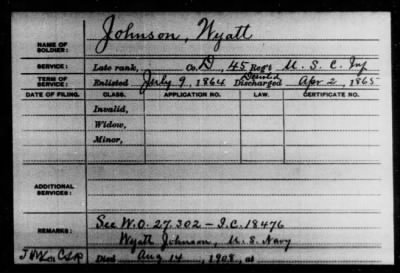 Johnson, Wyatt
NAME OF SOLDIER:
SERVICE: Late rank, Co. D, 45 Reg't U. S. C. Inf
TERM OF SERVICE: Enlisted July 9, 1864 Discharged Apr 2, 1865
DATE OF FILING. CLASS. APPLICATION NO. LAW. CERTIFICATE NO.
Invalid,
Widow,
Minor,
ADDITIONAL SERVICES:
REMARKS: See W.O. 27.302 - I.C. 18476
Wyatt Johnson, U. S. Navy
Died Aug 14, 1908, at